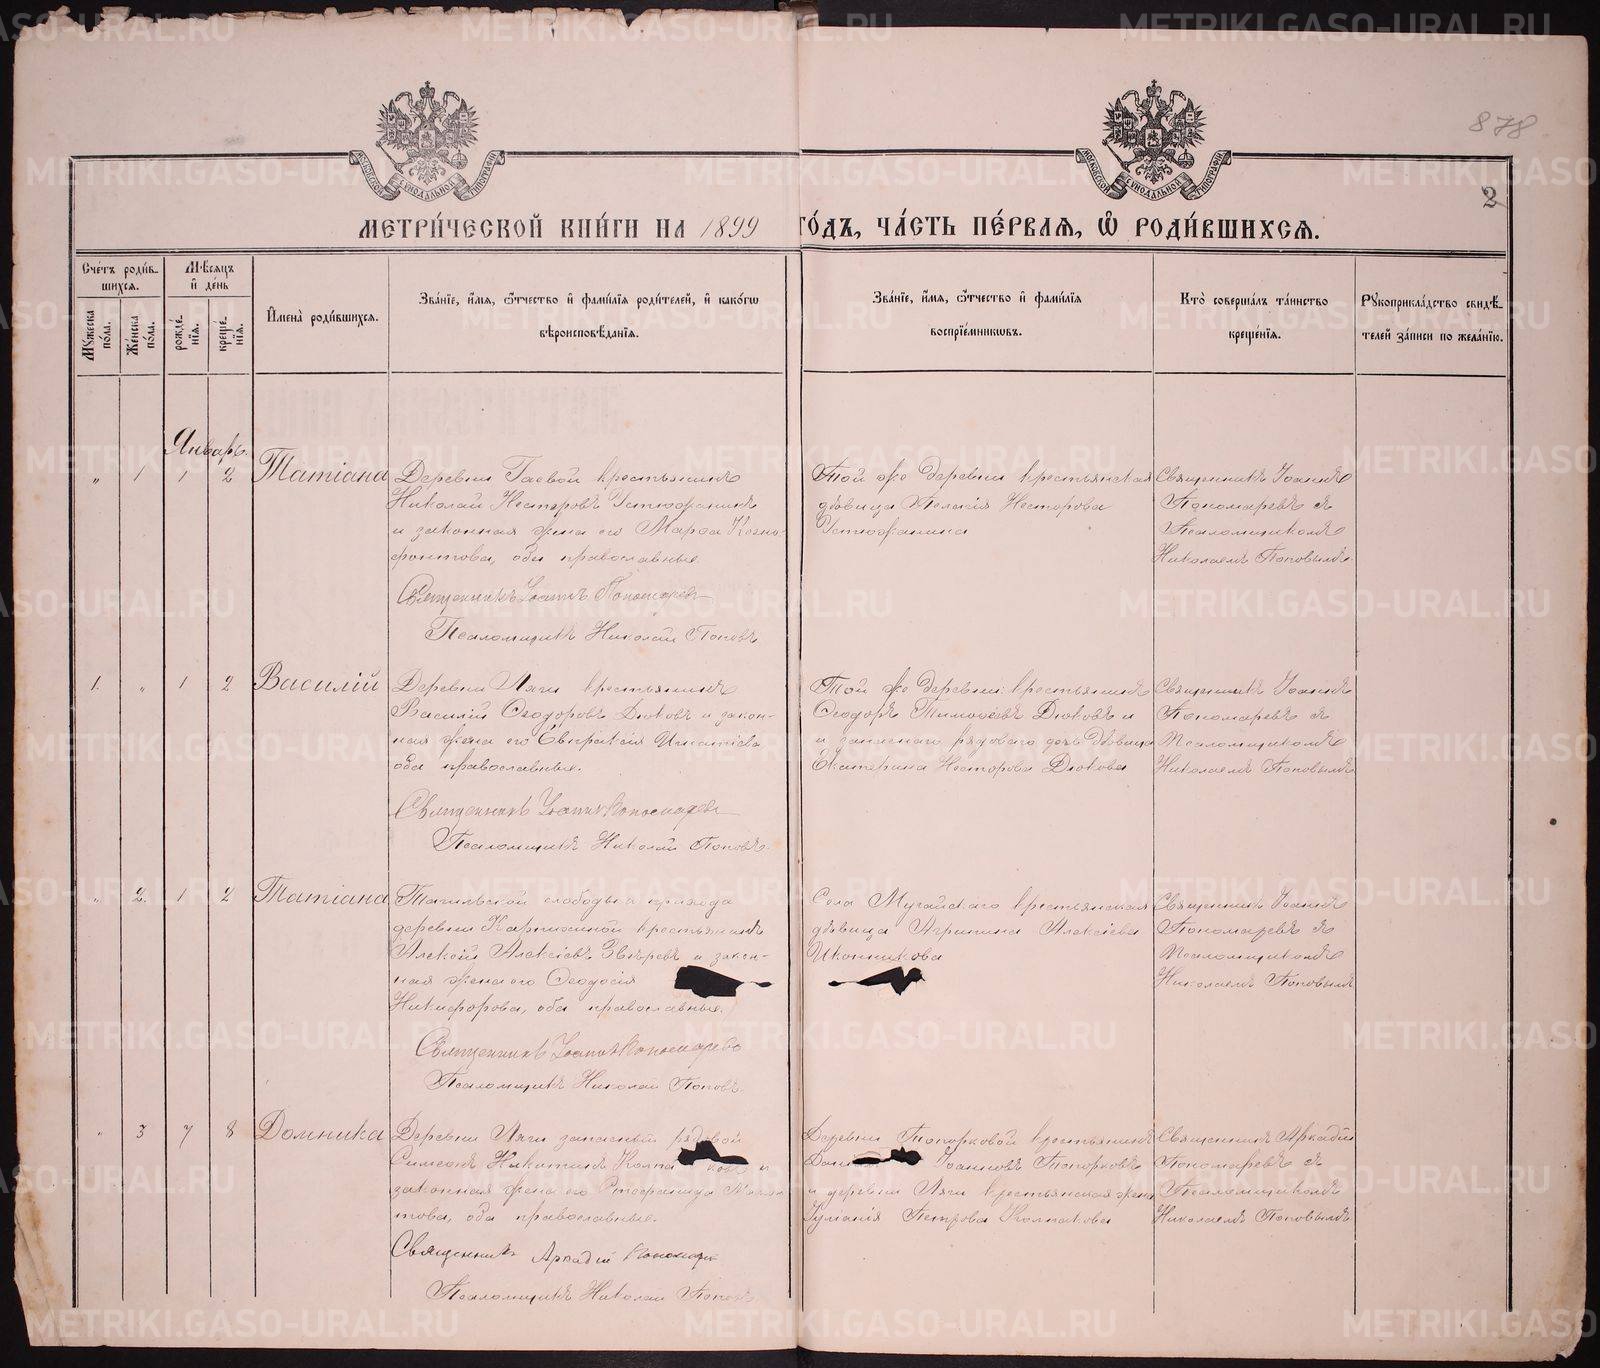 878
2
МОСКОВСКОЙ СѴНОДАЛЬНОЙ ТИПОГРАФІИ
МОСКОВСКОЙ СѴНОДАЛЬНОЙ ТИПОГРАФІИ
МЕТРИ́ЧЕСКОЙ КНИ́ГИ НА 1899 ГО́ДЪ, ЧА́СТЬ ПЕ́РВАЯ, Ѡ҆ РОДИ́ВШИХСЯ.
Сче́тъ роди́в-
шихся.
Мѣ́сяцъ
и҆ де́нь
Мꙋ́жеска по́ла.
Же́нска по́ла.
рожде́нїѧ.
креще́нїѧ.
И҆мена̀ роди́вшихся.
Зва́нїе, и҆́мѧ, ѻ҆́тчество и҆ фами́лїѧ роди́телей, и҆ како́гѡ
вѣроисповѣ́данїѧ.
Зва́нїе, и҆́мѧ, ѻ҆́тчество и҆ фами́лїѧ
воспрїе́мникѡвъ.
Кто̀ соверша́лъ та́инство
креще́нїѧ.
Рꙋкоприкла́дство свидѣ́-
телей за́писи по жела́нїю.
Январь.
„ 1 1 2
Татіана
Деревни Гаевой крестьянинъ
Николай Несторовъ Устюжанинъ
и законная жена его Марѳа Ксено-
фонтова, оба православные.
Священникъ Іоаннъ Пономаревъ
Псаломщикъ Николай Поповъ
Той же деревни крестьянская
дѣвица Пелагія Несторова
Устюжанина
Священникъ Іоаннъ
Пономаревъ съ
Псаломщикомъ
Николаемъ Поповымъ
1. „ 1 2
Василій
Деревни Ляги крестьянинъ
Василій Ѳеодоровъ Дюковъ и закон-
ная жена его Евпраксія Игнатіева
оба православные.
Священникъ Іоаннъ Пономаревъ
Псаломщикъ Николай Поповъ
Той же деревни: крестьянинъ
Ѳеодоръ Тимоѳеевъ Дюковъ и
и запаснаго рядоваго дочь дѣвица
Екатерина Несторова Дюкова
Священникъ Іоаннъ
Пономаревъ съ
Псаломщикомъ
Николаемъ Поповымъ
„ 2. 1 2
Татіана
Тагильской слободы прихода
деревни Карпихиной крестьянинъ
Алексій Алексіевъ Звѣревъ и закон-
ная жена его Ѳеодосія
Никифорова, оба православные.
Священникъ Іоаннъ Пономаревъ
Псаломщикъ Николай Поповъ
Села Мугайскаго крестьянская
дѣвица Агрипина Алексіева
Иконникова
Священникъ Іоаннъ
Пономаревъ съ
Псаломщикомъ
Николаемъ Поповымъ
„ 3 7 8
Домника
Деревни Ляги запасный рядовой
Симеонъ Никитинъ и
законная жена его Стефанида
оба православные.
Священникъ Аркадій Пономаревъ
Псаломщикъ Николай Поповъ
Деревни Топорковой крестьянинъ
Іоанновъ Топорковъ
и деревни Ляги крестьянская жена
Іуліанія Петрова Колпакова
Священникъ Аркадій
Пономаревъ съ
Псаломщикомъ
Николаемъ Поповымъ
METRIKI.GASO-URAL.RU